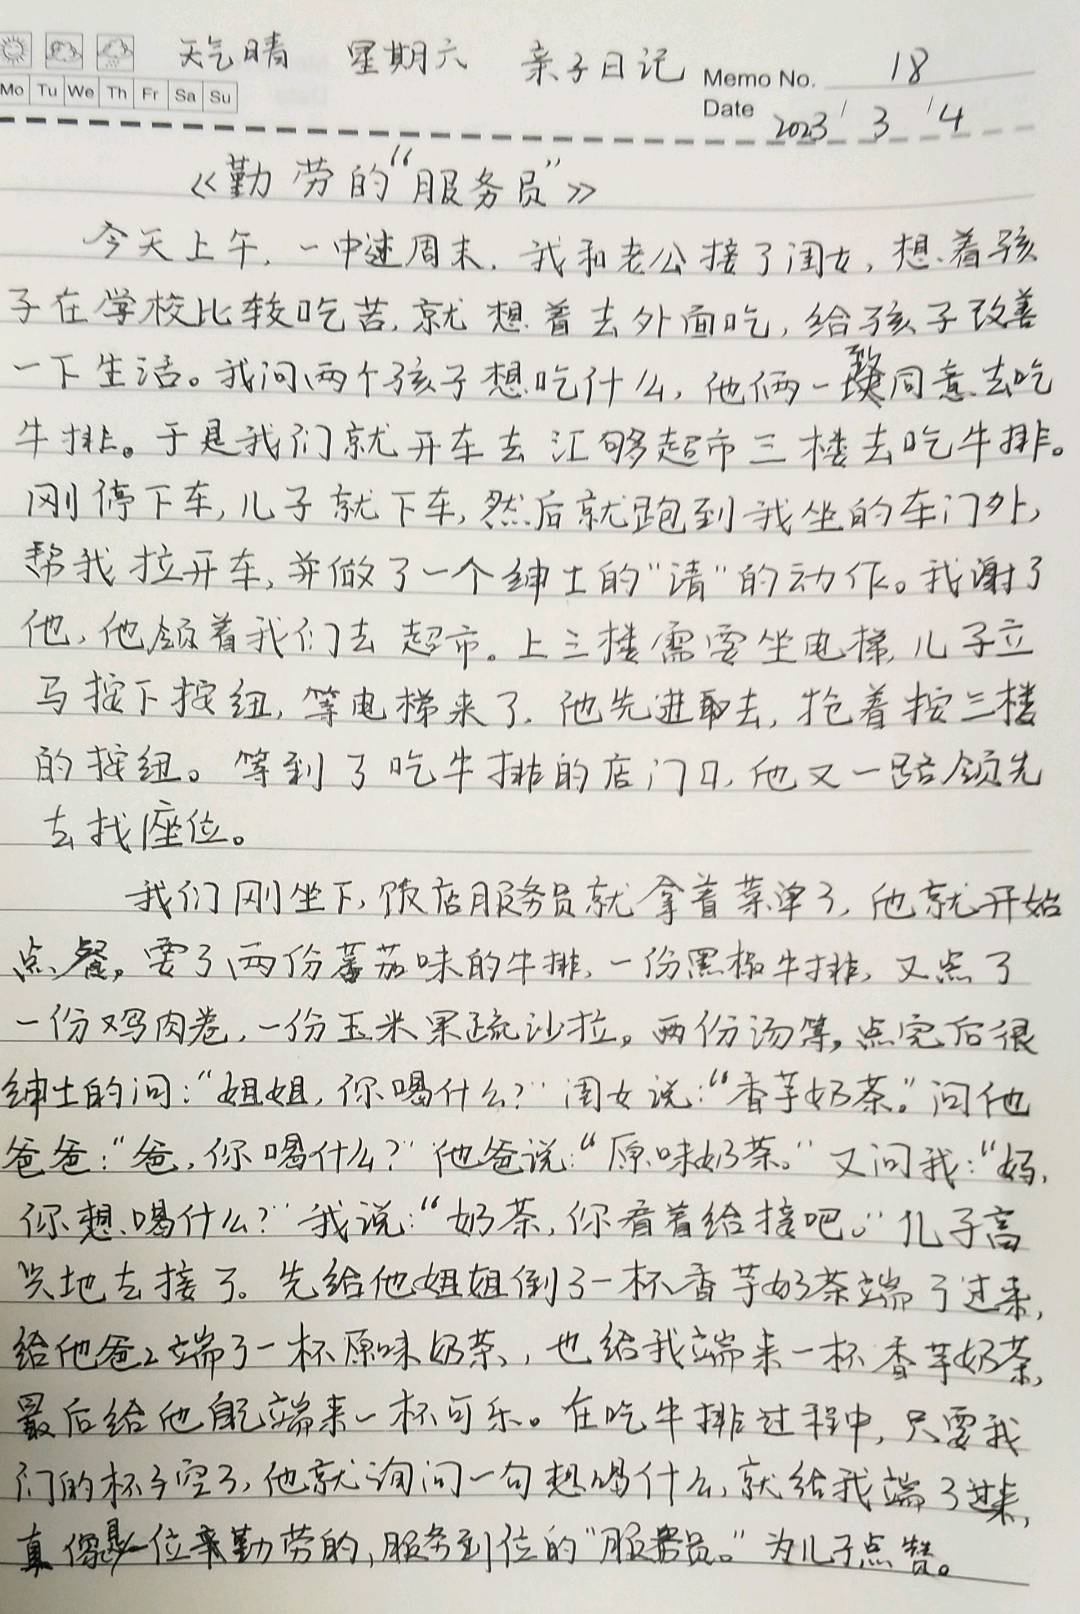 天气晴 星期六 亲子日记 Memo No. 18
Mo Tu We Th Fr Sa Su
Date 2023/3/4
《勤劳的“服务员”》
今天上午,一中过周末,我和老公接了闺女,想着孩
子在学校比较吃苦,就想着去外面吃,给孩子改善
一下生活。我问两个孩子想吃什么,他俩一致同意去吃
牛排。于是我们就开车去汇够超市三楼去吃牛排。
刚停下车,儿子就下车,然后就跑到我坐的车门外,
帮我拉开车,并做了一个绅士的“请”的动作。我谢了
他,他领着我们去超市。上三楼需要坐电梯,儿子立
马按下按纽,等电梯来了,他先进去,抢着按三楼
的按纽。等到了吃牛排的店门口,他又一路领先
去找座位。
我们刚坐下,饭店服务员就拿着菜单了,他就开始
点餐,要了两份蕃茄味的牛排,一份黑椒牛排,又点了
一份鸡肉卷,一份玉米果疏沙拉。两份汤等,点完后很
绅士的问:“姐姐,你喝什么?”闺女说:“香芋奶茶。”问他
爸爸:“爸,你喝什么?”他爸说:“原味奶茶。”又问我:“妈,
你想喝什么?”我说:“奶茶,你看着给接吧。”儿子高
兴地去接了。先给他姐姐倒了一杯香芋奶茶端了过来,
给他爸爸端了一杯原味奶茶,也给我端来一杯香芋奶茶,
最后给他自己端来一杯可乐。在吃牛排过程中,只要我
们的杯子空了,他就询问一句想喝什么,就给我端了过来,
真像是一位勤劳的,服务到位的“服务员。”为儿子点赞。